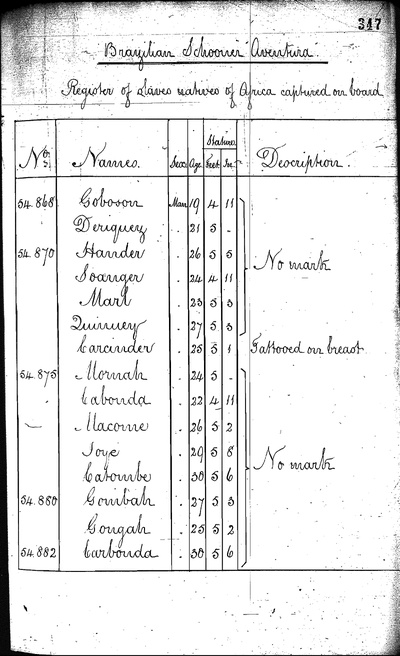 347
Brazilian Schooner "Aventura".
Register of Slaves natives of Africa captured on board
Nos. Names. Sex. Age Stature. Feet In. Description.
54.868 Goboson Man 19 4 11
Deriquey . 21 5 -
54.870 Hander . 26 5 5
Soanger . 24 4 11 No mark
Marl . 23 5 3
Quinuey . 27 5 3
Carcinder . 25 5 1 Tattooed on breast
54.875 Mornah . 24 5 -
Cabonda . 22 4 11
— Macome . 26 5 2
Joye . 29 5 8 No mark
Catombe . 30 5 6
54.880 Gombah . 27 5 3
Gongah . 25 5 2
54.882 Carbonda . 30 5 6